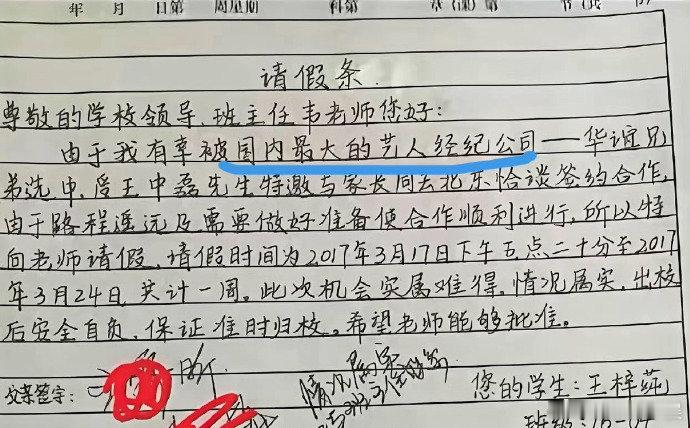 年 月 日第 周星期 科第 章(课)第 节(共
请假条
尊敬的学校领导、班主任韦老师您好:
由于我有幸被国内最大的艺人经纪公司——华谊兄
弟选中,受王中磊先生特邀与家长同去北京恰谈签约合作,
由于路程遥远及需要做好准备使合作顺利进行,所以特
向老师请假,请假时间为2017年3月17日下午五点二十分至2017
年3月24日,共计一周。此次机会实属难得,情况属实,出校
后安全自负,保证准时归校。希望老师能够批准。
情况属实
父亲签字:
您的学生:王梓莼
班级:16-04